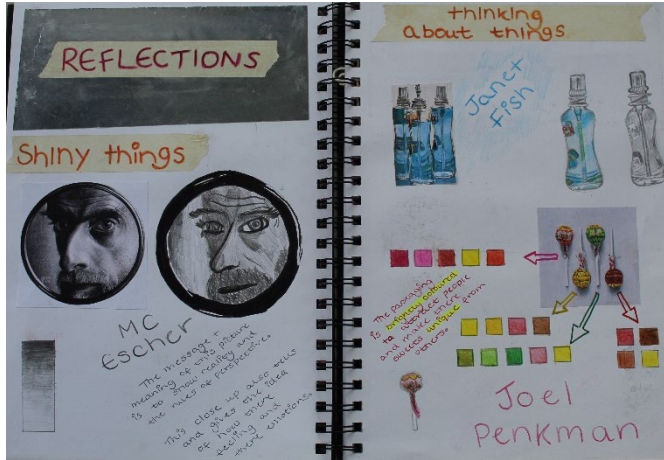 REFLECTIONS
Shiny things
MC
Escher
The message +
meaning of this picture
is to show reality and
the rules of perspectives
This close up also tells
and gives the idea
of how there
feeling and
there emotions.
thinking
about things
Janet
Fish
The packaging
is brightly coloured
to attract people
and make there
sweets unique from
others.
Joel
Penkman